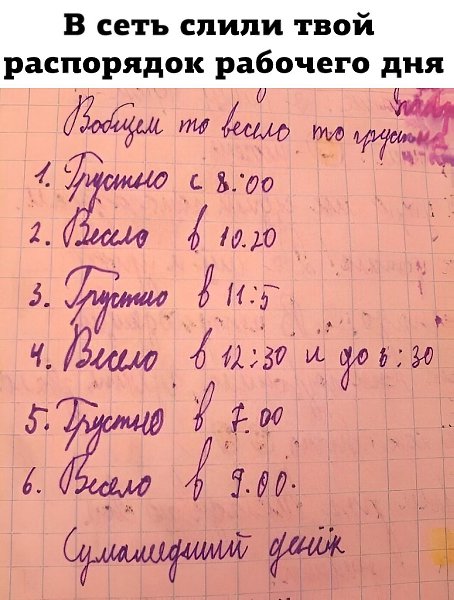 В сеть слили твой
распорядок рабочего дня
Вобщем то весело то грустно
1. Грустно с 8:00
2. Весело в 10.20
3. Грустно в 11:5
4. Весело в 12:30 и до 6:30
5. Грустно в 7.00
6. Весело в 9.00.
Сумашедший денёк